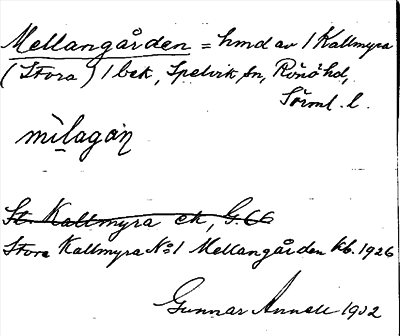 Mellangården = hmd av 1 Kallmyra
(Stora) 1 bek, Spelvik sn, Rönö hd,
Sörml. l.
mìlagán
St. Kallmyra ek, G. 66
Stora Kallmyra No 1 Mellangården kb. 1926
Gunnar Annell 1932